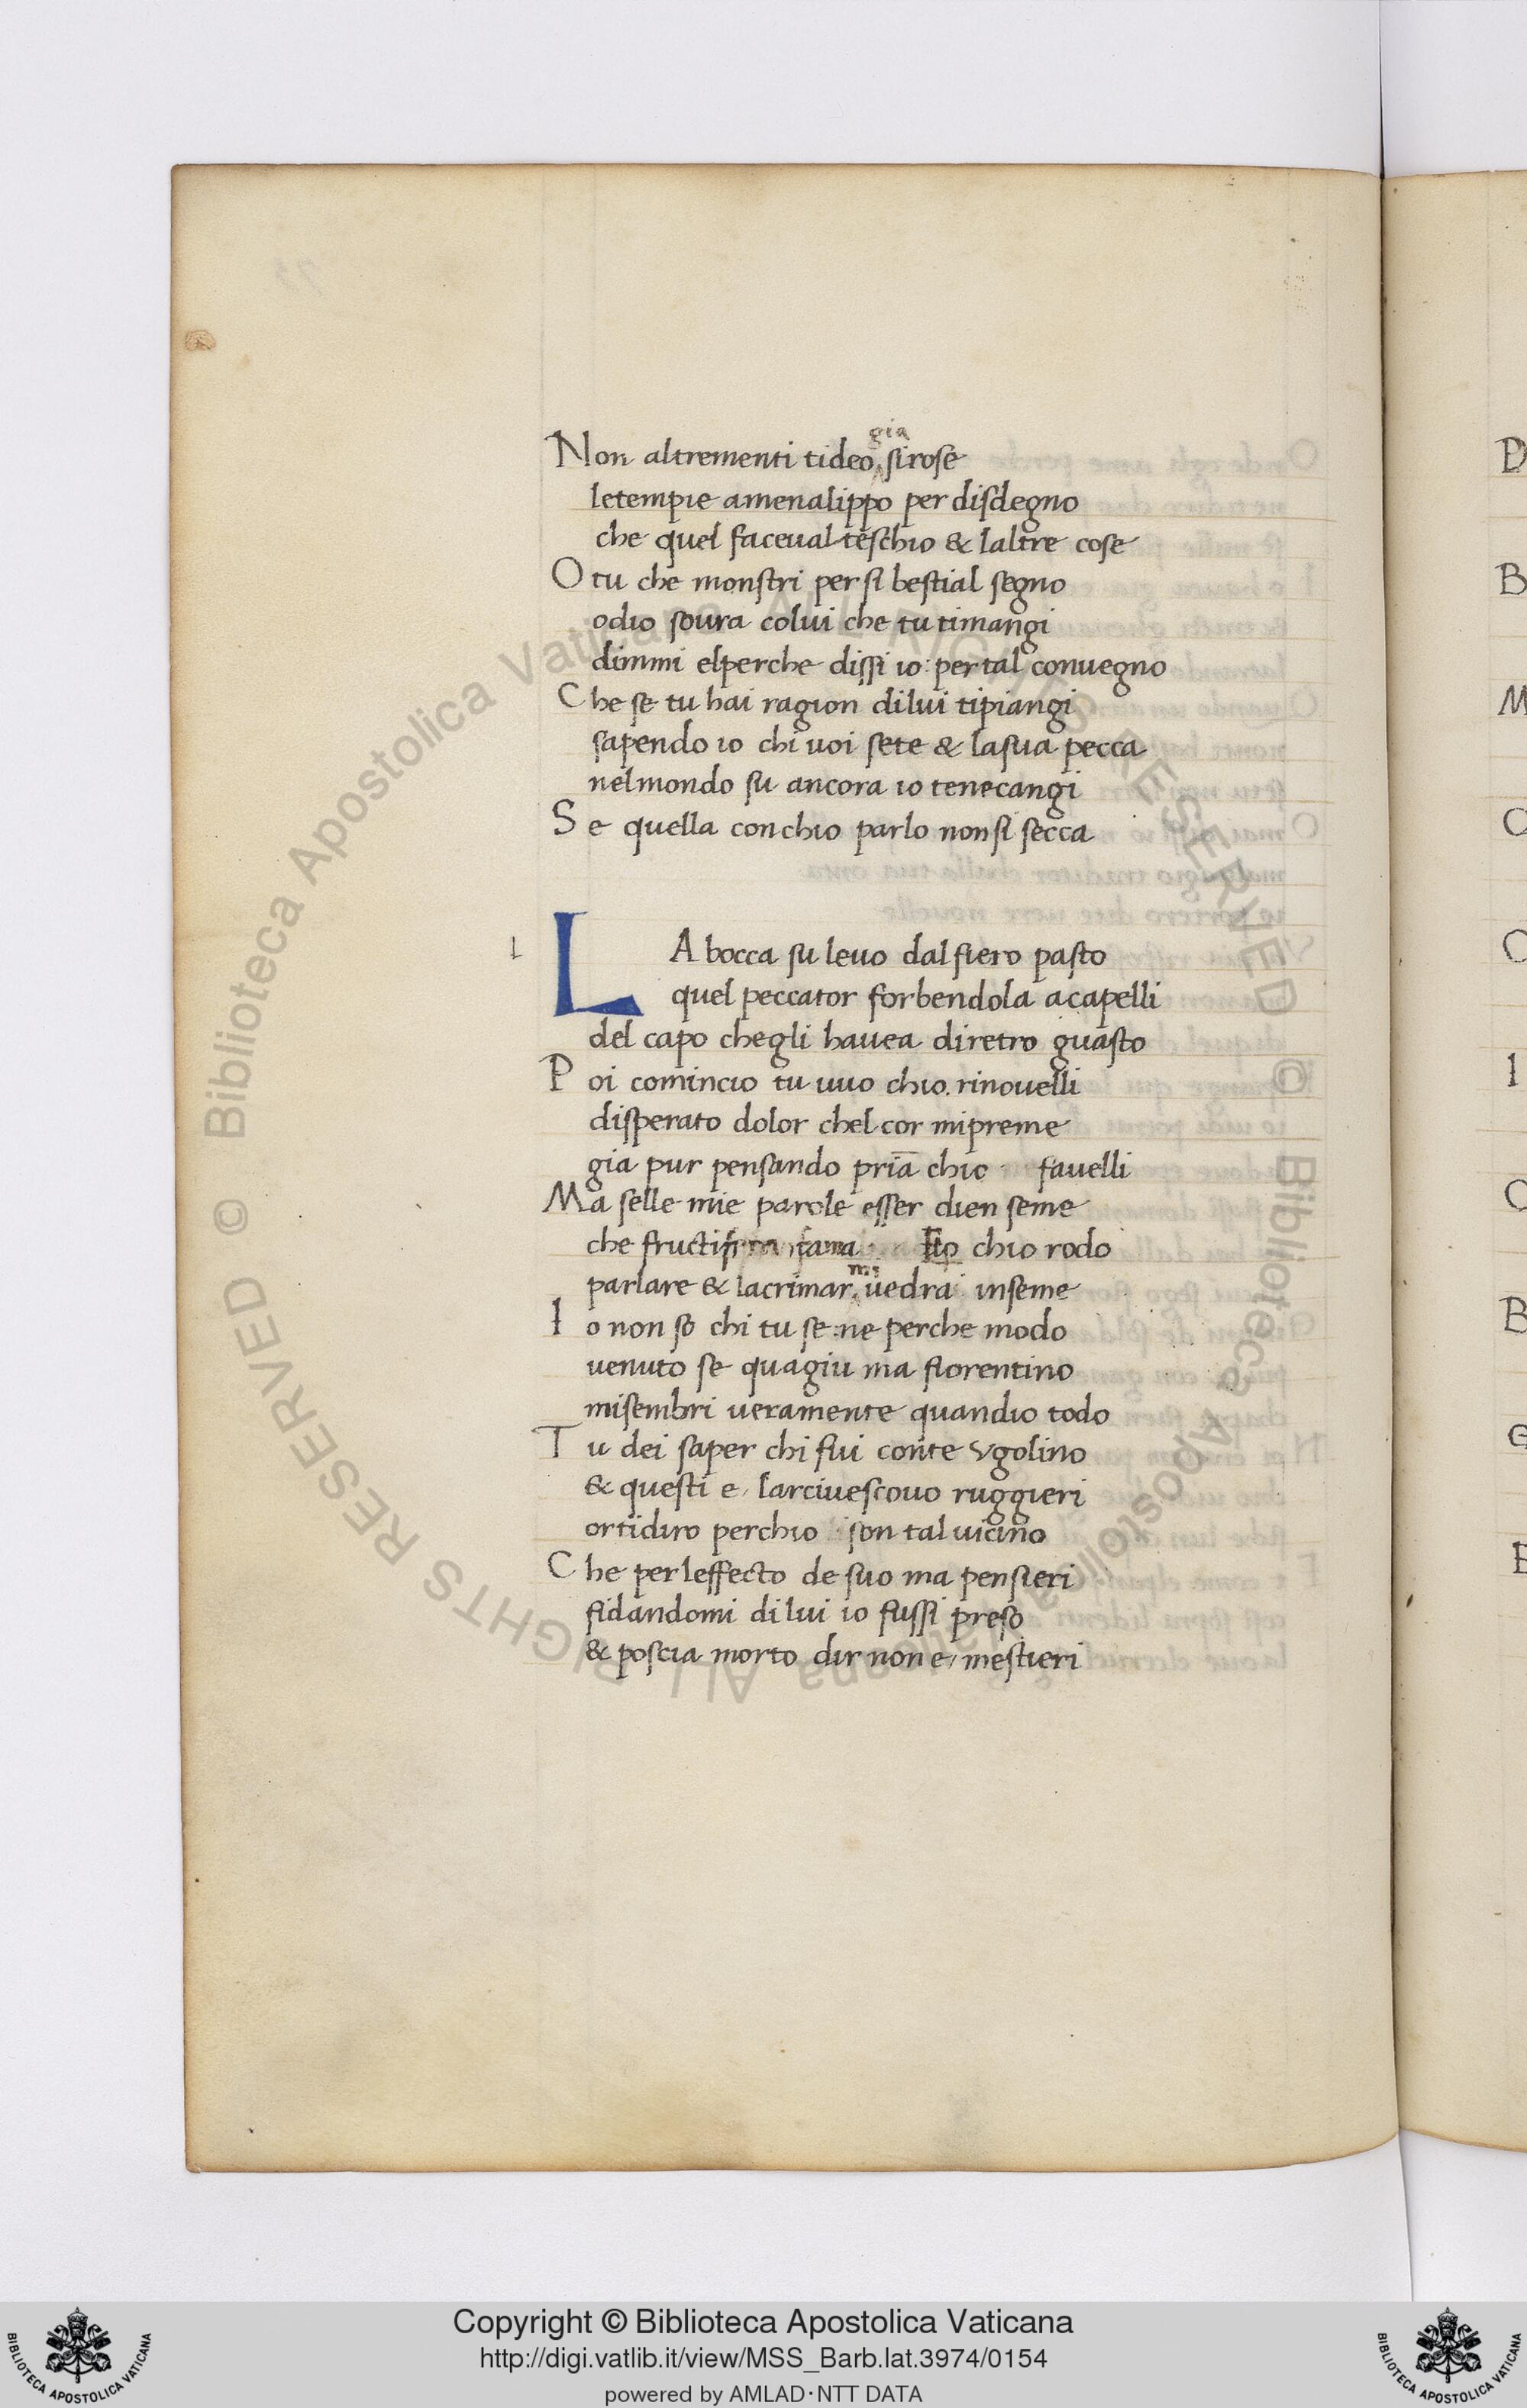 Non altrementi tideo gia si rose
le tempie a menalippo per disdegno
che quel faceual teschio & laltre cose
O tu che monstri per si bestial segno
odio soura colui che tu ti mangi
dimmi el perche dissi io: per tal conuegno
Che se tu hai ragion di lui ti piangi
sapendo io chi uoi sete & la sua pecca
nel mondo su ancora io te ne cangi
Se quella con chio parlo non si secca
l
LA bocca su leuo dal fiero pasto
quel peccator forbendola a capelli
del capo chegli hauea diretro guasto
Poi comincio tu uuo chio rinouelli
disperato dolor chel cor mi preme
gia pur pensando pria chio fauelli
Ma selle mie parole esser dien seme
che chio rodo
parlare & lacrimar mi uedrai inseme
Io non so chi tu se ne perche modo
uenuto se qua giu ma fiorentino
mi sembri ueramente quandio todo
Tu dei saper chi fui conte vgolino
& questi e larciuescouo ruggieri
or ti diro perchio son tal uicino
Che per leffecto de suo ma pensieri
fidandomi di lui io fussi preso
& poscia morto dir non e mestieri
Copyright © Biblioteca Apostolica Vaticana
http://digi.vatlib.it/view/MSS_Barb.lat.3974/0154
powered by AMLAD·NTT DATA